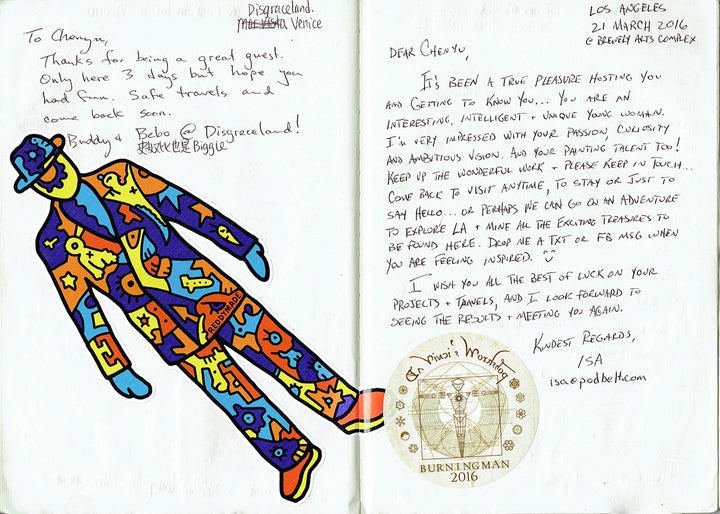 Disgraceland.
Mar Vista Venice
To Chenyu,
Thanks for being a great guest.
Only here 3 days but hope you
had fun. Safe travels and
come back soon.
Buddy & Bebo @ Disgraceland!
Biggle
REDDYMADE
LOS ANGELES
21 MARCH 2016
@ BREWERY ARTS COMPLEX
DEAR CHENYU,
IT'S BEEN A TRUE PLEASURE HOSTING YOU
AND GETTING TO KNOW YOU... YOU ARE AN
INTERESTING, INTELLIGENT + UNIQUE YOUNG WOMAN.
I'M VERY IMPRESSED WITH YOUR PASSION, CURIOSITY
AND AMBITIOUS VISION. AND YOUR PAINTING TALENT TOO!
KEEP UP THE WONDERFUL WORK + PLEASE KEEP IN TOUCH...
COME BACK TO VISIT ANYTIME, TO STAY OR JUST TO
SAY HELLO... OR PERHAPS WE CAN GO ON AN ADVENTURE
TO EXPLORE LA + MINE ALL THE EXCITING TREASURES TO
BE FOUND HERE. DROP ME A TXT OR FB MSG WHEN
YOU ARE FEELING INSPIRED.
I WISH YOU ALL THE BEST OF LUCK ON YOUR
PROJECTS + TRAVELS, AND I LOOK FORWARD TO
SEEING THE RESULTS + MEETING YOU AGAIN.
KINDEST REGARDS,
ISA
isa@podbelt.com
Da Vinci's Workshop
BURNING MAN
2016